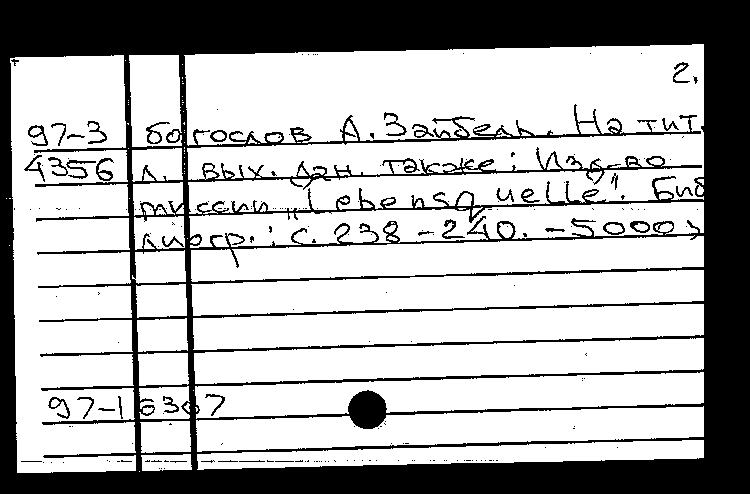 2.
97-3 богослов А. Зайбель. На тит.
4356 л. вых. дан. также: Изд-во
миссии „Lebensquelle“. Биб
лиогр.: с. 238-240. -5000э
97-16367